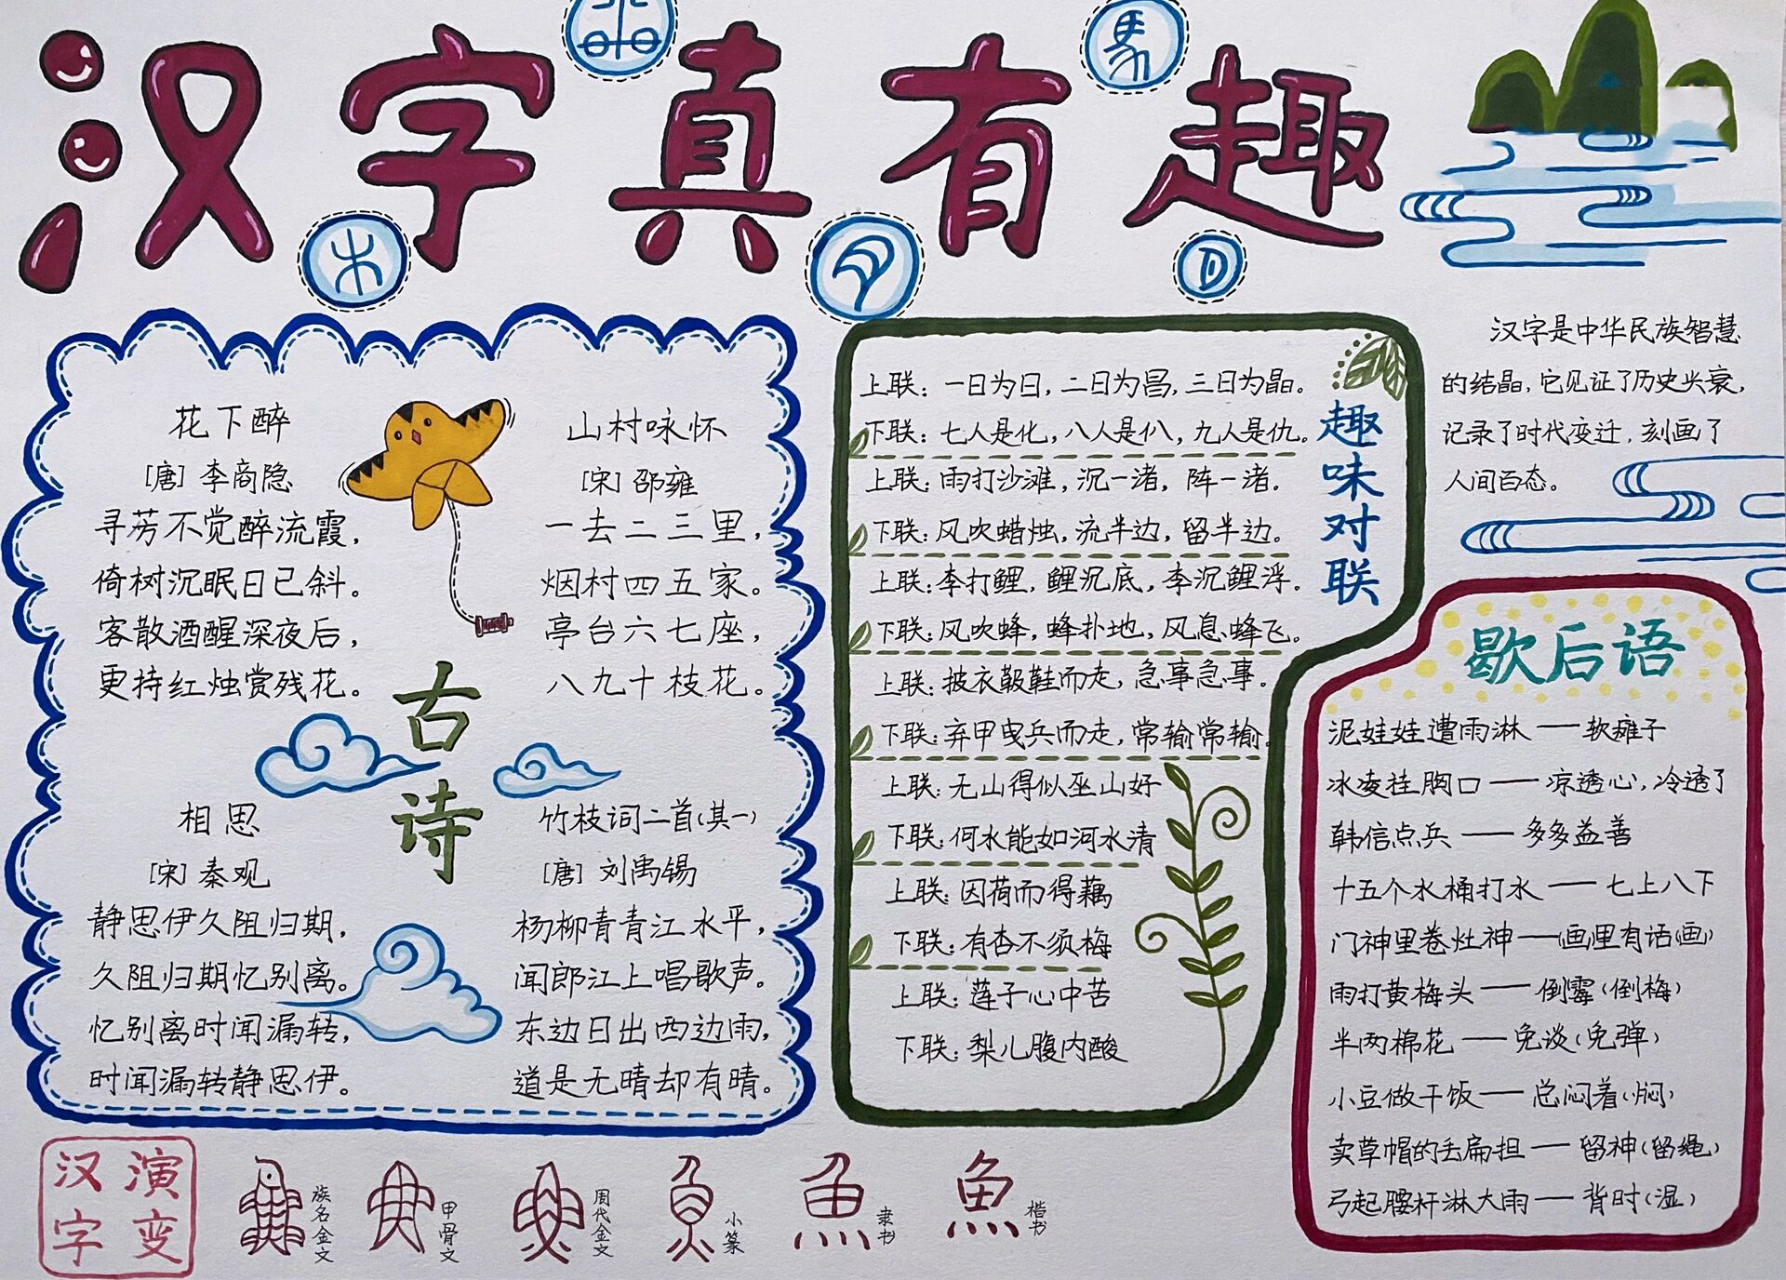 汉字真有趣
花下醉
[唐] 李商隐
寻芳不觉醉流霞，
倚树沉眠日已斜。
客散酒醒深夜后，
更持红烛赏残花。
山村咏怀
[宋] 邵雍
一去二三里，
烟村四五家。
亭台六七座，
八九十枝花。
古诗
相思
[宋] 秦观
静思伊久阻归期，
久阻归期忆别离。
忆别离时闻漏转，
时闻漏转静思伊。
竹枝词二首(其一)
[唐] 刘禹锡
杨柳青青江水平，
闻郎江上唱歌声。
东边日出西边雨，
道是无晴却有晴。
趣味对联
上联：一日为日，二日为昌，三日为晶。
下联：七人是化，八人是仈，九人是仇。
上联：雨打沙滩，沉一渚，阵一渚。
下联：风吹蜡烛，流半边，留半边。
上联：李打鲤，鲤沉底，李沉鲤浮。
下联：风吹蜂，蜂扑地，风息蜂飞。
上联：披衣靸鞋而走，急事急事。
下联：弃甲曳兵而走，常输常输。
上联：无山得似巫山好
下联：何水能如河水清
上联：因荷而得藕
下联：有杏不须梅
上联：莲子心中苦
下联：梨儿腹内酸
汉字是中华民族智慧
的结晶，它见证了历史兴衰，
记录了时代变迁，刻画了
人间百态。
歇后语
泥娃娃遭雨淋——软瘫子
冰凌挂胸口——凉透心，冷透了
韩信点兵——多多益善
十五个水桶打水——七上八下
门神里卷灶神——画里有话(画)
雨打黄梅头——倒霉(倒梅)
半两棉花——免谈(免弹)
小豆做干饭——总闷着(焖)
卖草帽的丢扁担——留神(留绳)
弓起腰杆淋大雨——背时(湿)
汉字演变
族名金文
甲骨文
周代金文
小篆
隶书
楷书